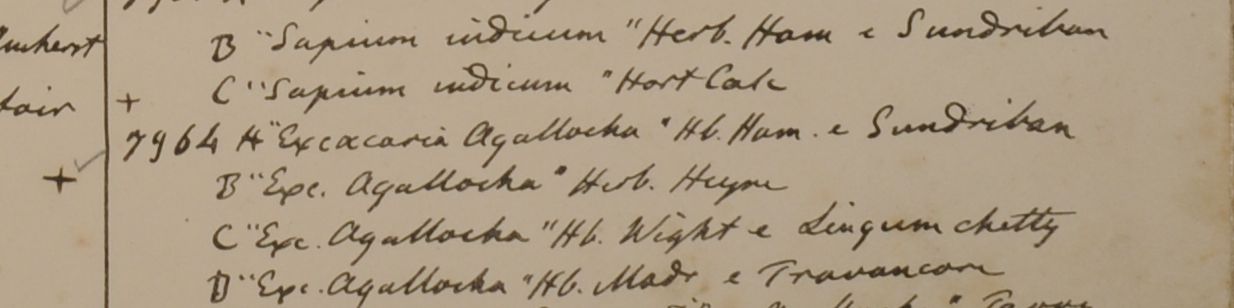 B "Sapium indicum" Herb. Ham e Sundriban
C "Sapium indicum" Hort Calc
+
7964 A "Excacaria Agallocha" Hb. Ham. e Sundriban
+ B "Exc. Agallocha" Herb. Heyne
C "Exc. Agallocha" Hb. Wight e Lingum chetty
D "Exc. Agallocha" Hb. Madr e Travancore